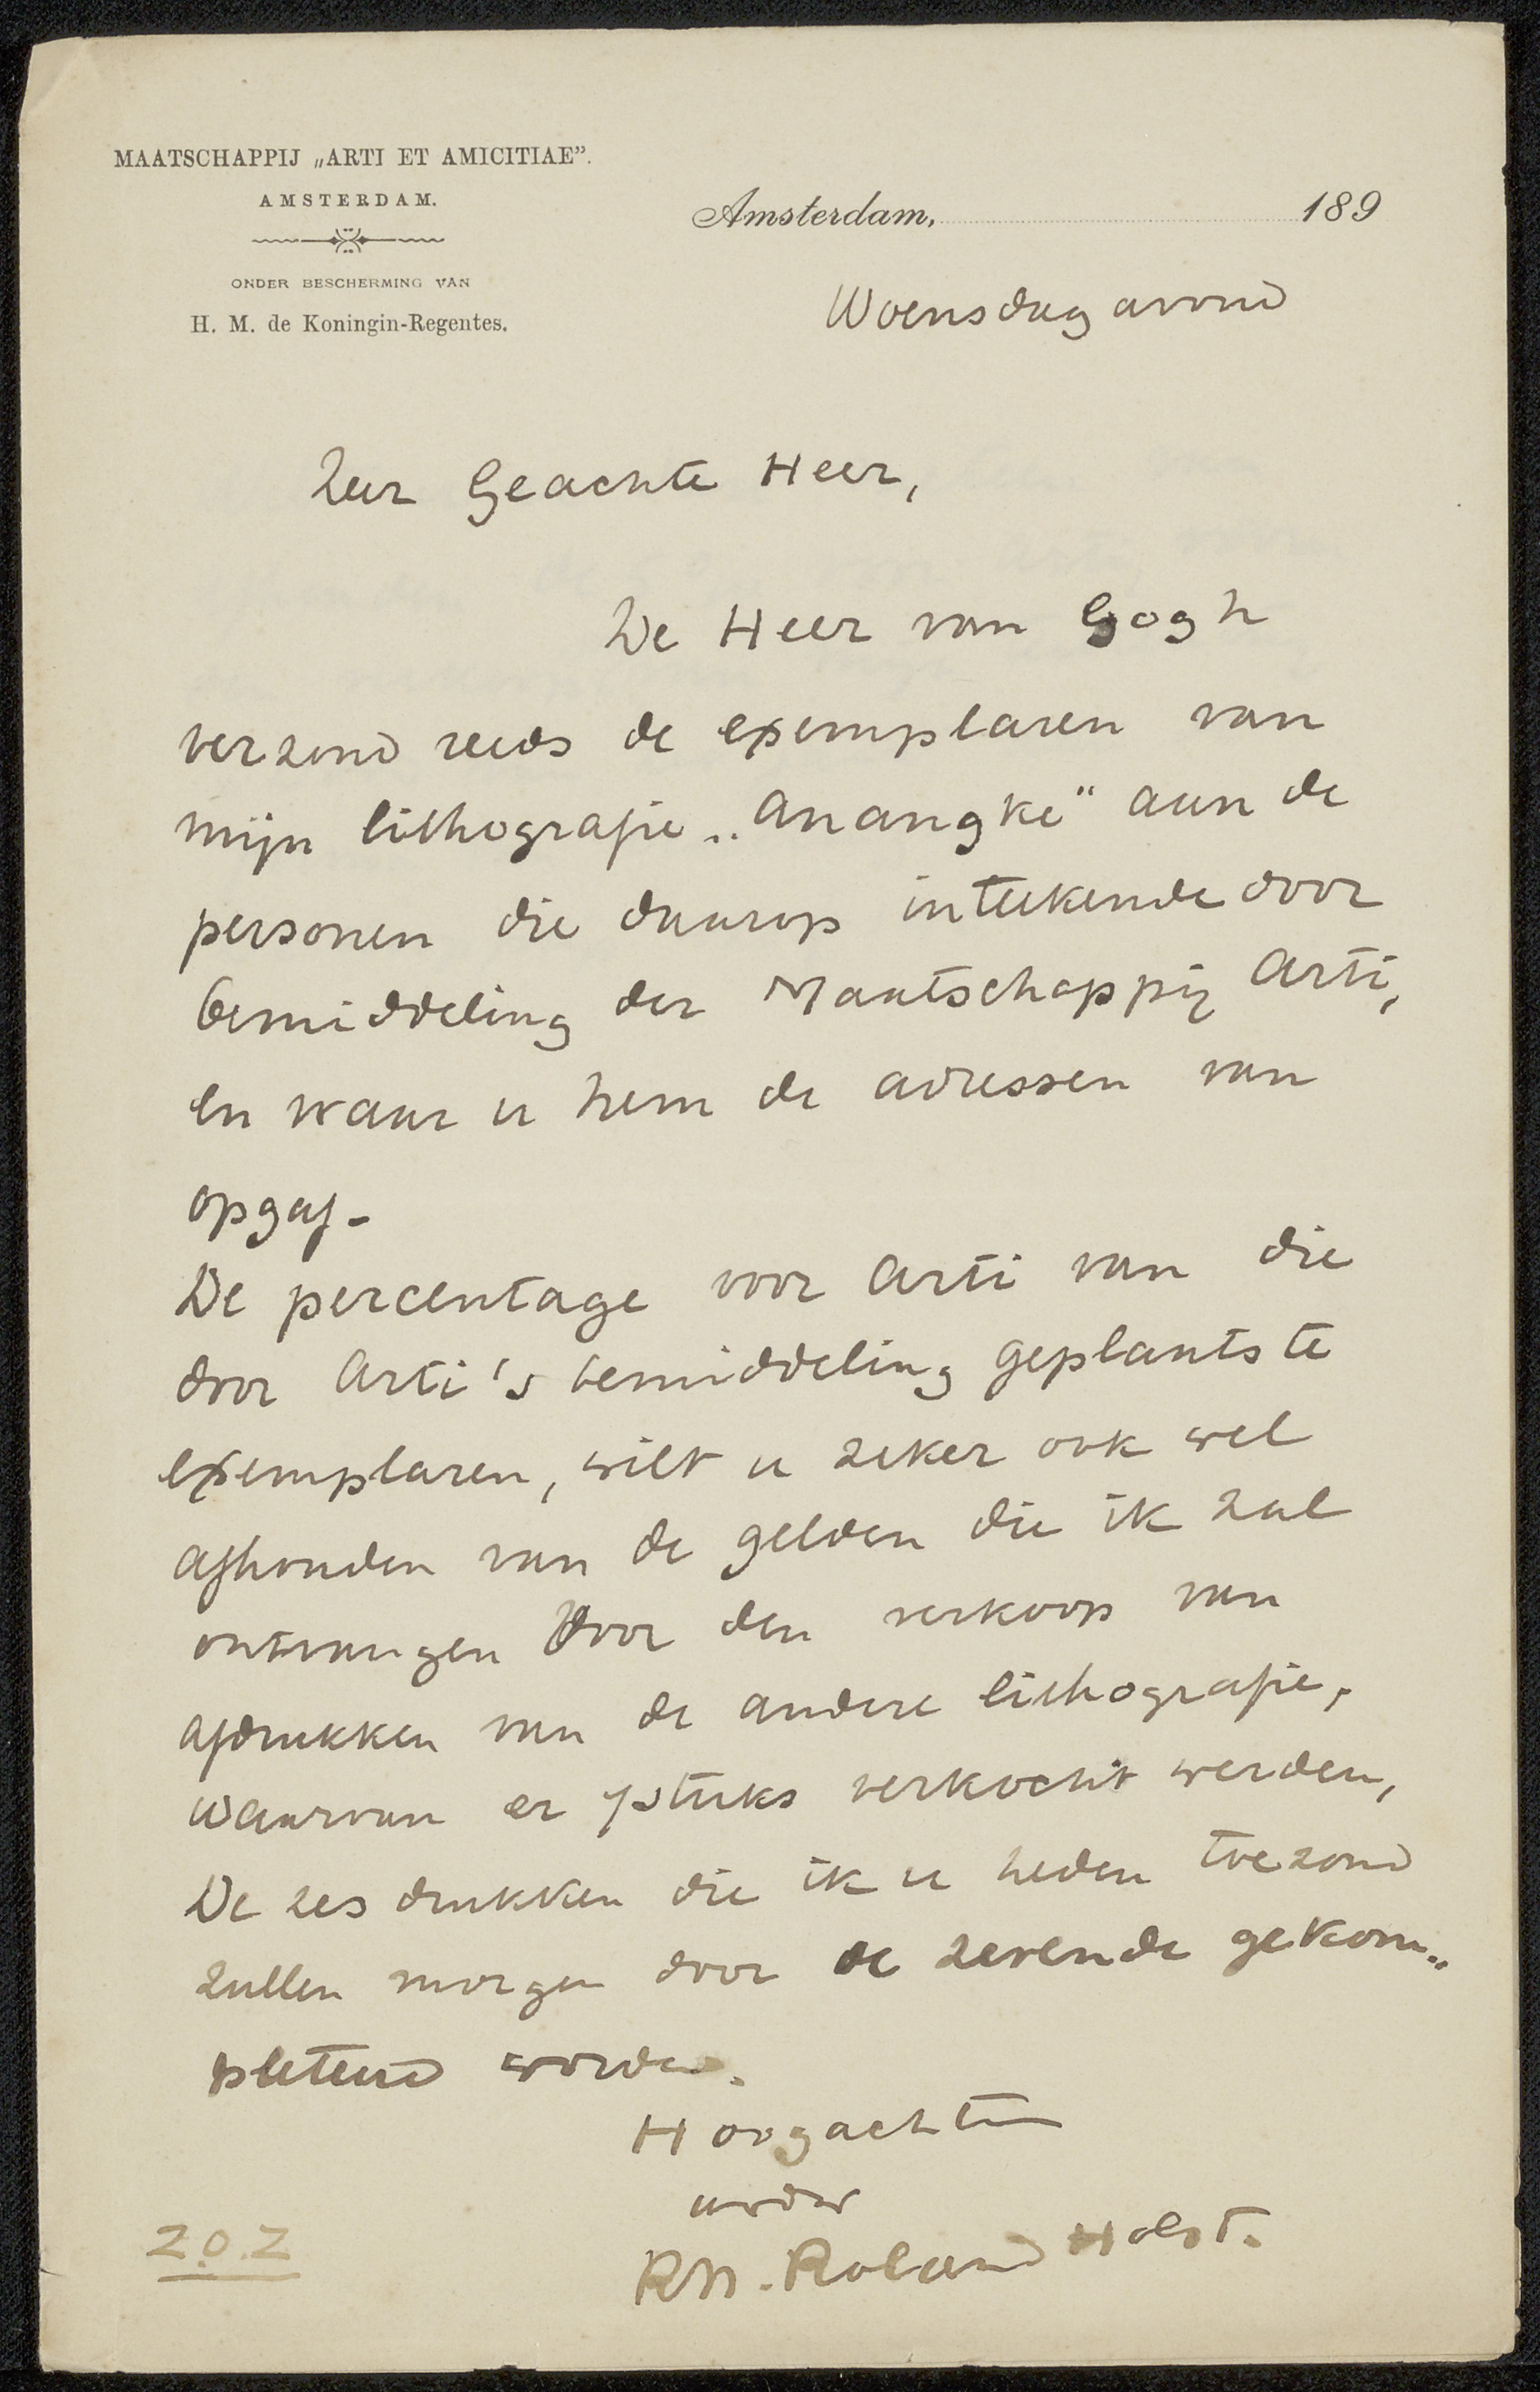 MAATSCHAPPIJ „ARTI ET AMICITIAE”.
AMSTERDAM.
ONDER BESCHERMING VAN
H. M. de Koningin-Regentes.
Amsterdam, 189
Woensdag avond
Zeer Geachte Heer,
De Heer van Gogh
verzond reeds de exemplaren van
mijn lithografie „Anangke“ aan de
personen die daarop inteekende door
bemiddeling der Maatschappij Arti,
en waar u hem de adressen van
opgaf-
De percentage voor Arti van die
door Arti's bemiddeling geplaatste
exemplaren, wilt u zeker ook wel
afhouden van de gelden die ik zal
ontvangen door den verkoop van
afdrukken van de andere lithografie,
waarvan er 7 stuks verkocht werden,
De zes drukken die ik u heden toezond
zullen morgen door de zevende gekom„
pleteerd worden.
Hoogachtend
uwdw
RN. Roland Holst.
Z.O.Z